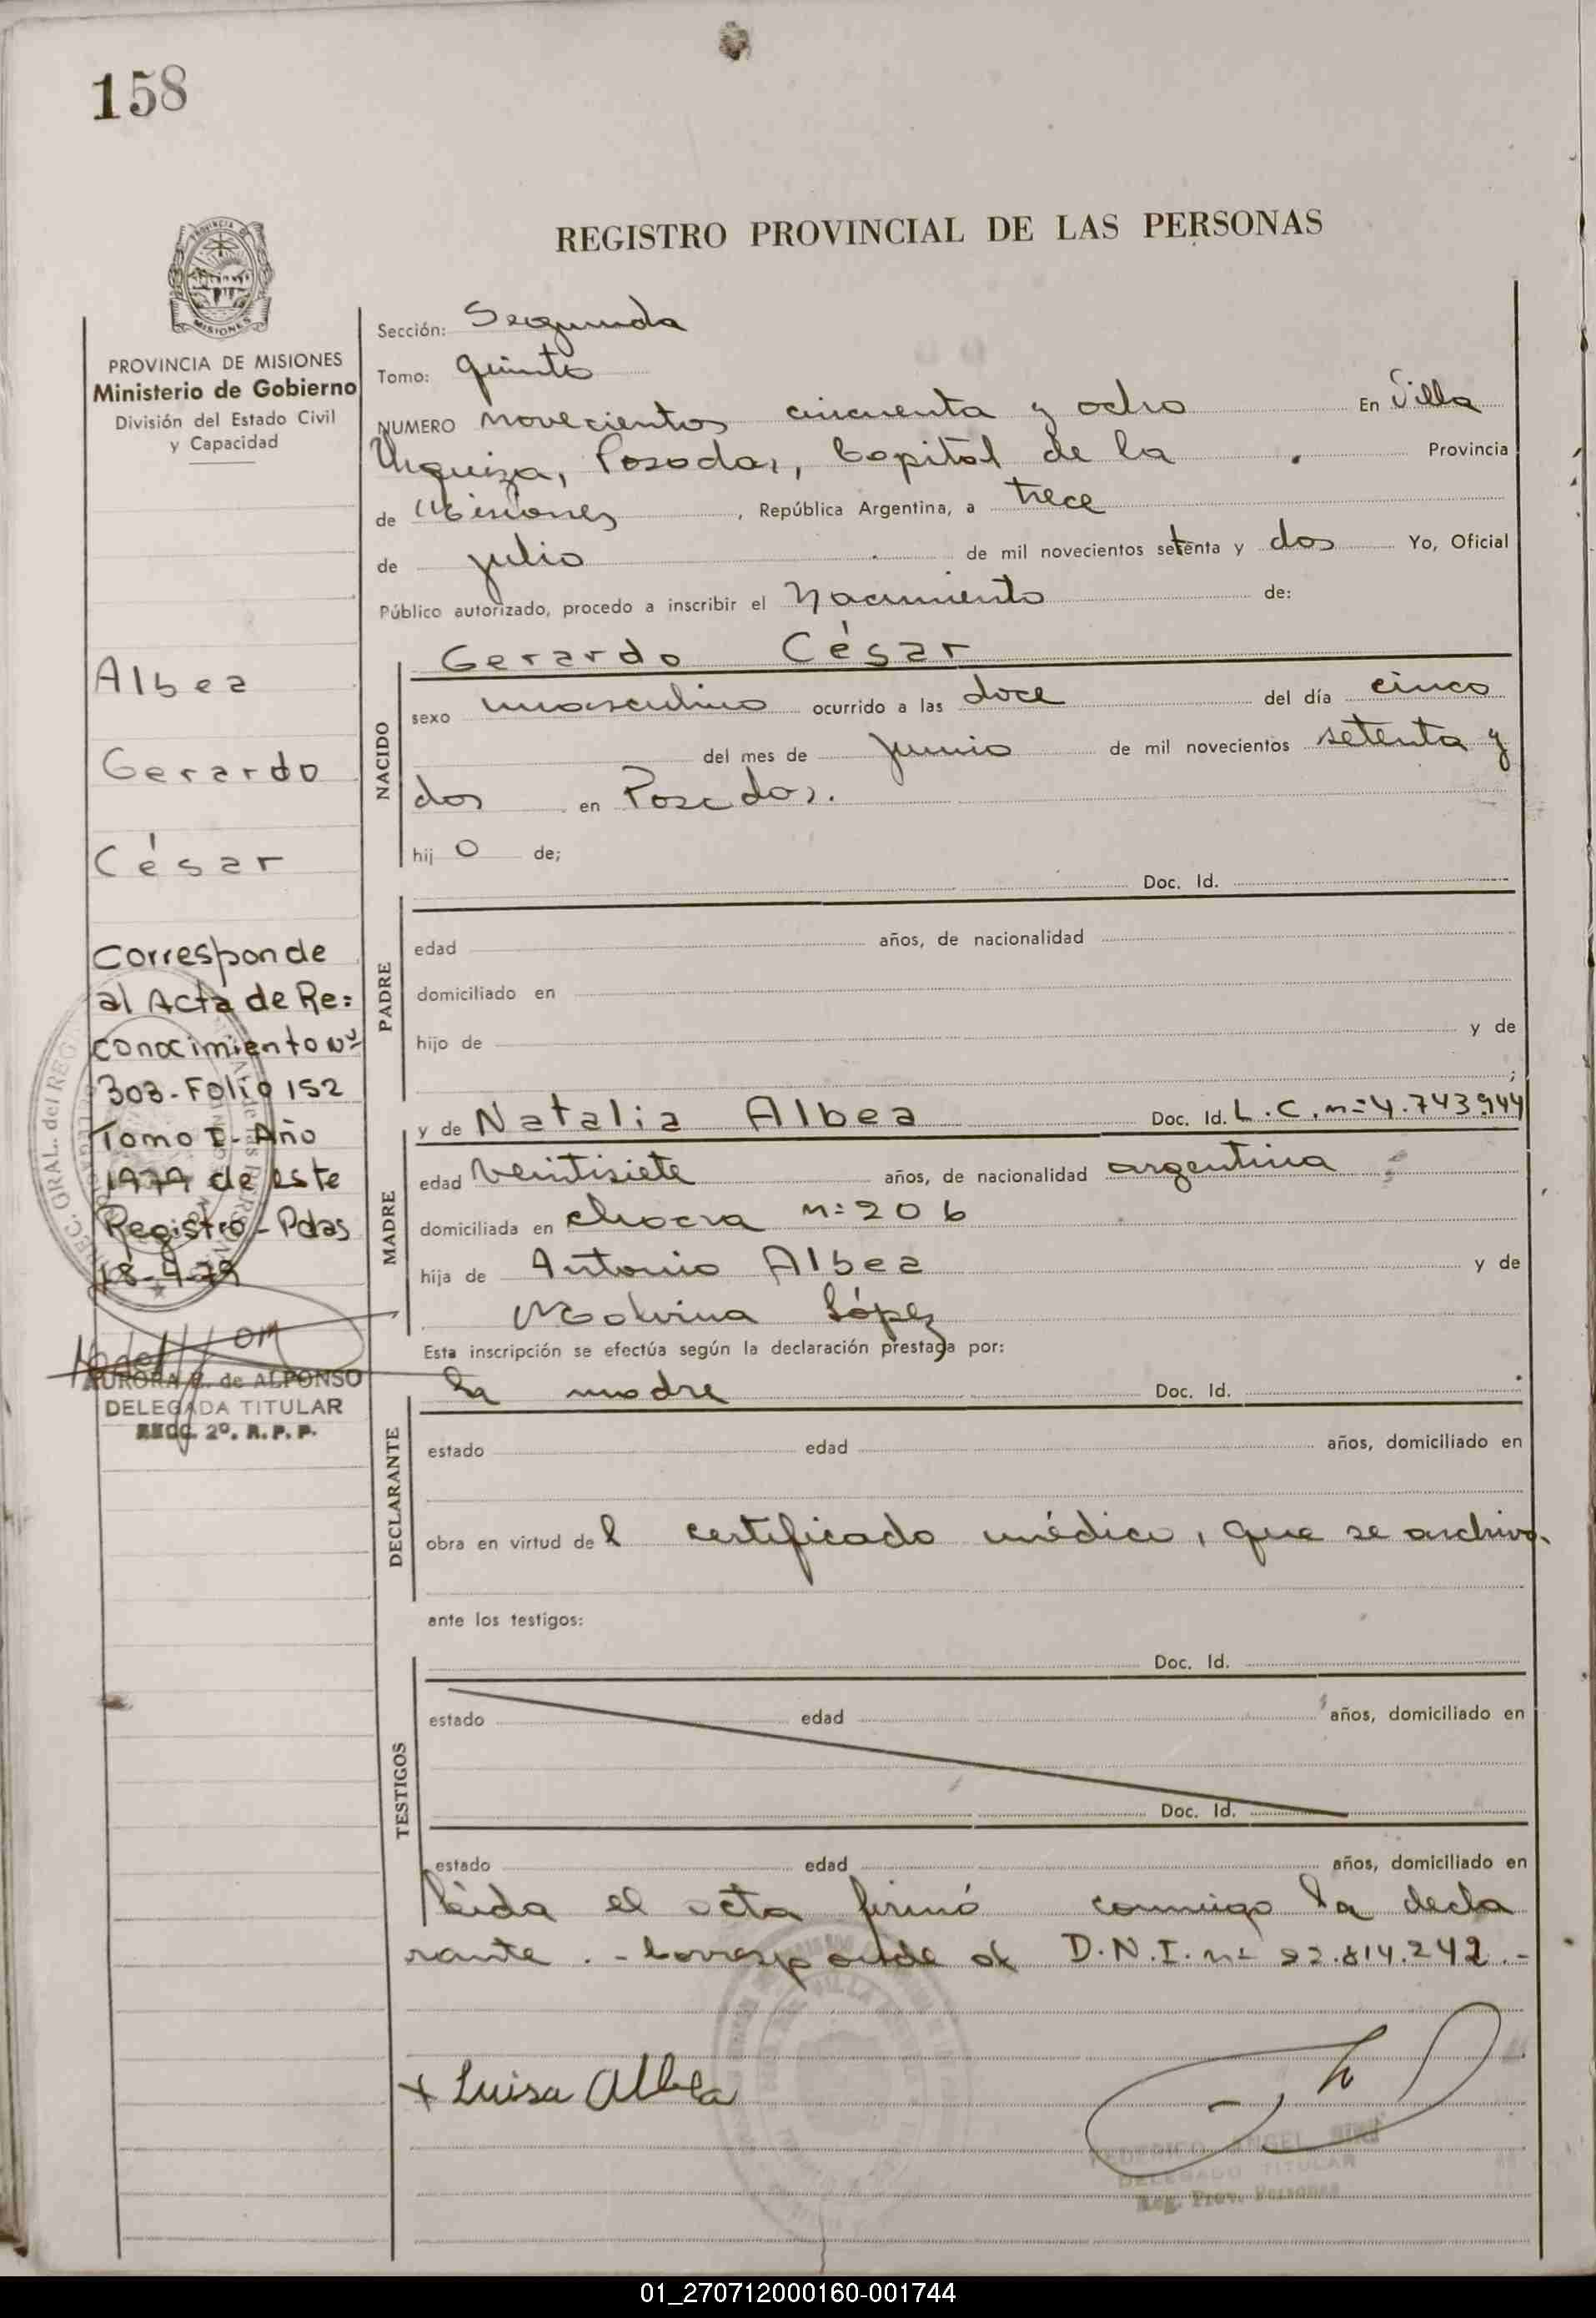 158
REGISTRO PROVINCIAL DE LAS PERSONAS
PROVINCIA DE MISIONES
Ministerio de Gobierno
División del Estado Civil
y Capacidad
Albea
Gerardo
César
Corresponde
al Acta de Re=
conocimiento Nº
303-Folio 152
Tomo I-Año
1979 de este
Registro-Pdas
18-4-79
AURORA de ALFONSO
DELEGADA TITULAR
SECC. 2º. R.P.P.
Sección: Segunda
Tomo: quinto
NUMERO novecientos cincuenta y ocho En Villa
Urquiza, Posadas, Capital de la Provincia
de Misiones, República Argentina, a trece
de julio de mil novecientos setenta y dos Yo, Oficial
Público autorizado, procedo a inscribir el Nacimiento de:
Gerardo César
NACIDO
sexo masculino ocurrido a las doce del día cinco
del mes de junio de mil novecientos setenta y
dos en Posadas.
hij o de;
Doc. Id.
PADRE
edad años, de nacionalidad
domiciliado en
hijo de y de
;
y de Natalia Albea Doc. Id. L.C.nº4.743.944
MADRE
edad veintisiete años, de nacionalidad argentina
domiciliada en chacra nº 206
hija de Antonio Albea y de
Malvina López
Esta inscripción se efectúa según la declaración prestada por:
la madre Doc. Id.
DECLARANTE
estado edad años, domiciliado en
obra en virtud de l certificado médico, que se archiva.
ante los testigos:
Doc. Id.
TESTIGOS
estado edad años, domiciliado en
Doc. Id.
estado edad años, domiciliado en
leída el acta firmó conmigo la decla
rante.- Corresponde al D.N.I. nº 22.814.242.-
x Luisa Albea
FEDERICO ANGEL
DELEGADO TITULAR
Reg. Prov. Personas
01_270712000160-001744